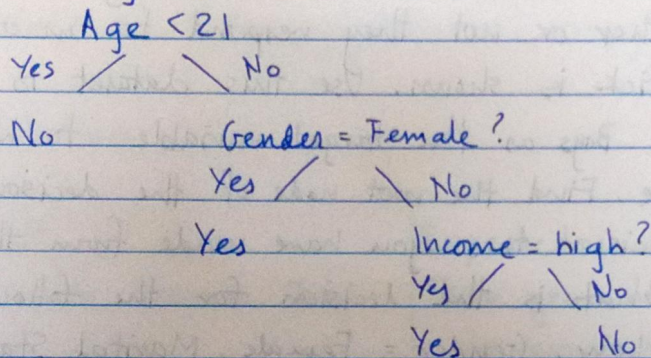 Age <21
Yes No
No Gender = Female ?
Yes No
Yes Income = high ?
Yes No
Yes No